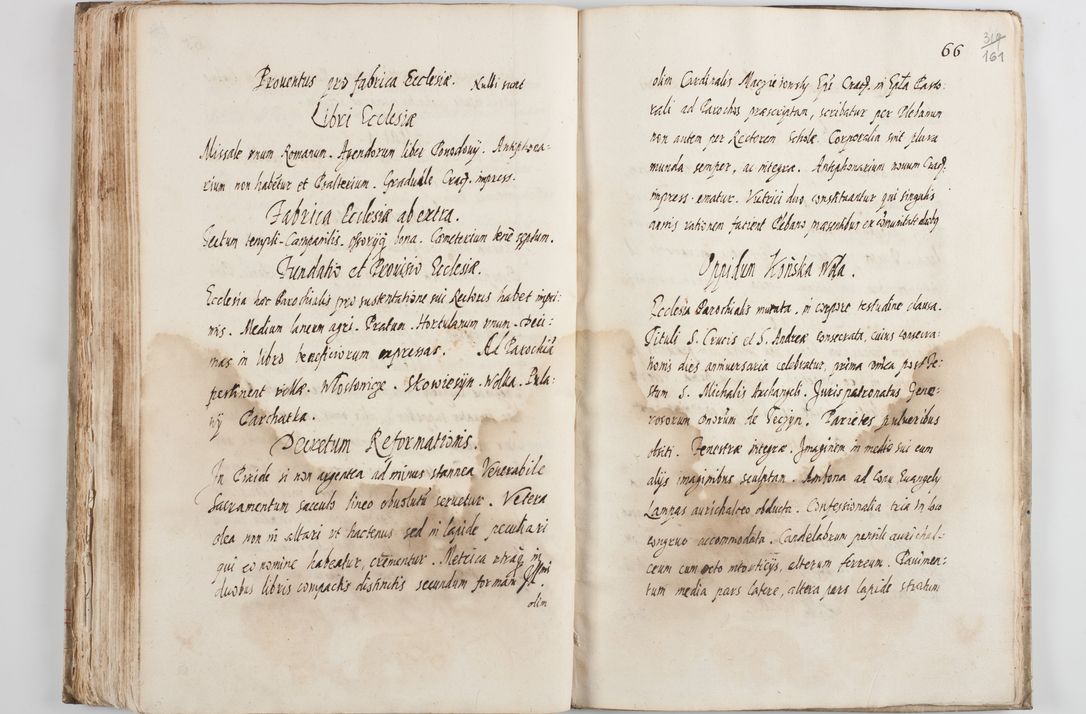 Prouentus pro fabrica Ecclesiæ. Nulli sunt
Libri Ecclesiæ
Missale vnum Romanum. Agendorum liber Ponodouy. Antiphona:
rium non habetur et Psalterium. Graduale Crac. impress.
Fabrica Ecclesiæ ab extra.
Tectum templi. Campanilis. bona. Cœmeterium bene septum.
Fundatio et Prouisio Ecclesiæ.
Ecclesia hæc Parochialis pro sustentatione sui Rectoris habet inpri:
mis. Medium laneum agri. Pratum. Hortulanum vnum. Deci:
mas in libro beneficiorum expressas. Ad Parochiā
pertinent villæ. Włostowice. Skowiesyn. Wolka. Pula:
wy Parchatka.
Decretum Reformationis.
In Pixide si non argentea ad minus stannea Venerabile
Sacramentum sacculo lineo obuolutū seruetur. Vetera
olea non in altari vt hactenus sed in lapide peculiari
qui eo nomine habeatur, crementur. Metrica vtraq in
duobus libris compactis distinctis secundum formam Illmi
olim
66
319
161
olim Cardinalis Macyieiowsky Epi Crac. in Epla Pasto:
rali ad Parochos præscriptam, scribatur per Plebanum
non autem per Rectorem Scholæ. Corporalia sint plura
munda semper, ac integra. Antiphonarium nouum Crac.
impress. ematur. Vitrici duo constituantur qui singulis
annis rationem facient Plebano præsentibus ex cōmunitate
Oppidum Końska Wola.
Ecclesia Parochialis murata, in corpore testudine clausa.
Tituli S. Crucis et S. Andreæ consecrata, cuius consecra:
tionis dies anniuersaria celebratur, prima dnīca post Fe:
stum S. Michælis Archangeli. Juris patronatus Gene:
rosorum Dnorum de Teczyn. Parietes pulueribus
obsiti. Fenestræ integræ. Imaginem in medio sui cum
alijs imaginibus sculptam. Ambona ad Euangely
aurichalceo obducta. Confessionalia tria in loco
congruo accommodata. Candelabrum pensile aurichal:
ceum cum octo alterum ferreum. Pauimen:
tum media pars latere, altera pars lapide stratum